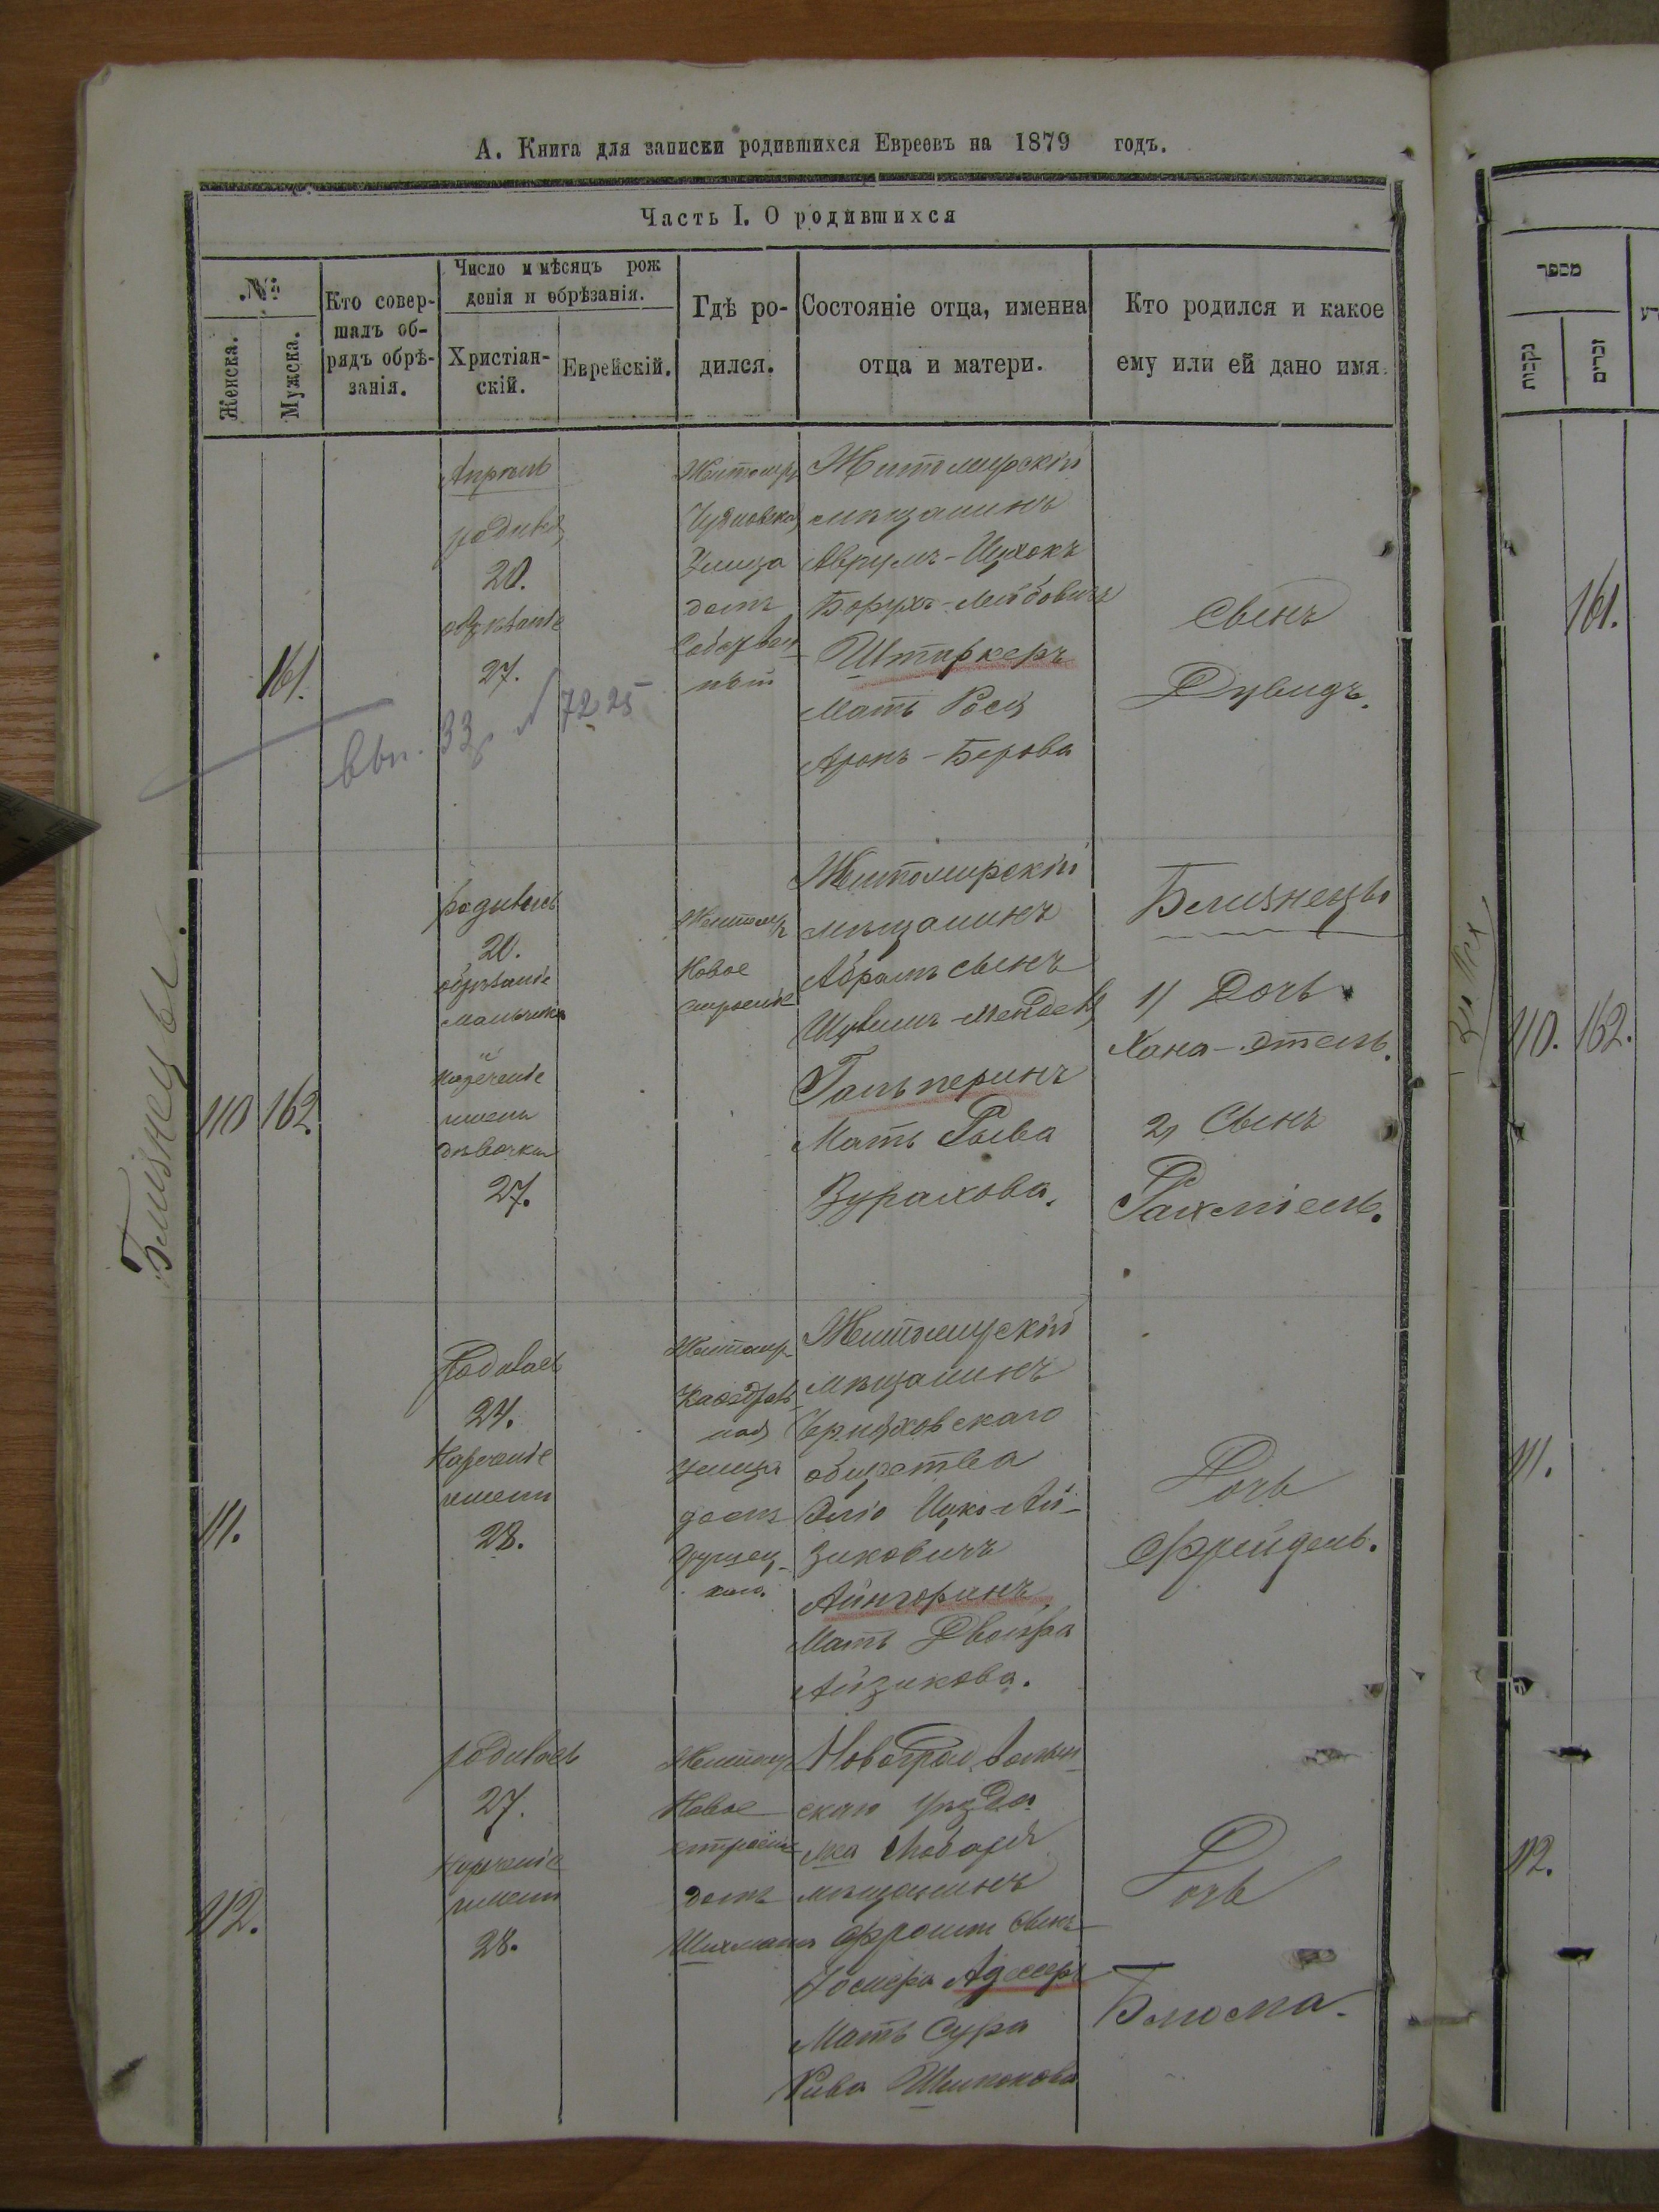 А. Книга для записки родившихся Евреевъ на 1879 годъ.
Часть I. О родившихся
№
Женска.
Мужска.
Кто совер-
шалъ об-
рядъ обрѣ-
занія.
Число и мѣсяцъ рож
денія и обрѣзанія.
Христіан-
скій.
Еврейскій.
Гдѣ ро-
дился.
Состояніе отца, именна
отца и матери.
Кто родился и какое
ему или ей дано имя.
161.
Апрѣль
родився
20.
обрѣзаніе
27.
Житомир
Чудновская
Улица
домъ
Житомирскій
мѣщанинъ
Аврумъ-Ицхокъ
Борухъ-Лейбовичъ
Штаркеръ
Мать Рося
Аронъ-Берова
Сынъ
Дувидъ.
33 № 7225
Близнецы.
110 162.
родились
20.
обрѣзаніе
мальчика
и
нареченіе
имени
дѣвочки
27.
Житомир
Новое
строеніе
Житомирскій
мѣщанинъ
Абрамъ сынъ
Шулимъ-Менделя
Гальперинъ
Мать Рыва
Зурахова.
Близнецы
1) Дочь
Хана-Этель.
2) Сынъ
Рахміель.
111.
Родилась
24.
Нареченіе
имени
28.
Житомир
Каѳедраль
ная
Улица
домъ
Житомирскій
мѣщанинъ
Черняховскаго
общества
Эліо Ицко-Ай-
зиковичъ
Айнгоринъ
Мать Двойра
Айзикова.
Дочь
Фрейдель.
112.
родилась
27.
Нареченіе
имени
28.
Житомир
Новое
строеніе
домъ
Шихмана
Новоград Волын
скаго уѣзда
м-ка Любаря
мѣщанинъ
Фроим сынъ
Мать Сура
Рива
Дочь
Блюма.
מספר
נקבות
זכרים
161.
110. 162.
111.
112.